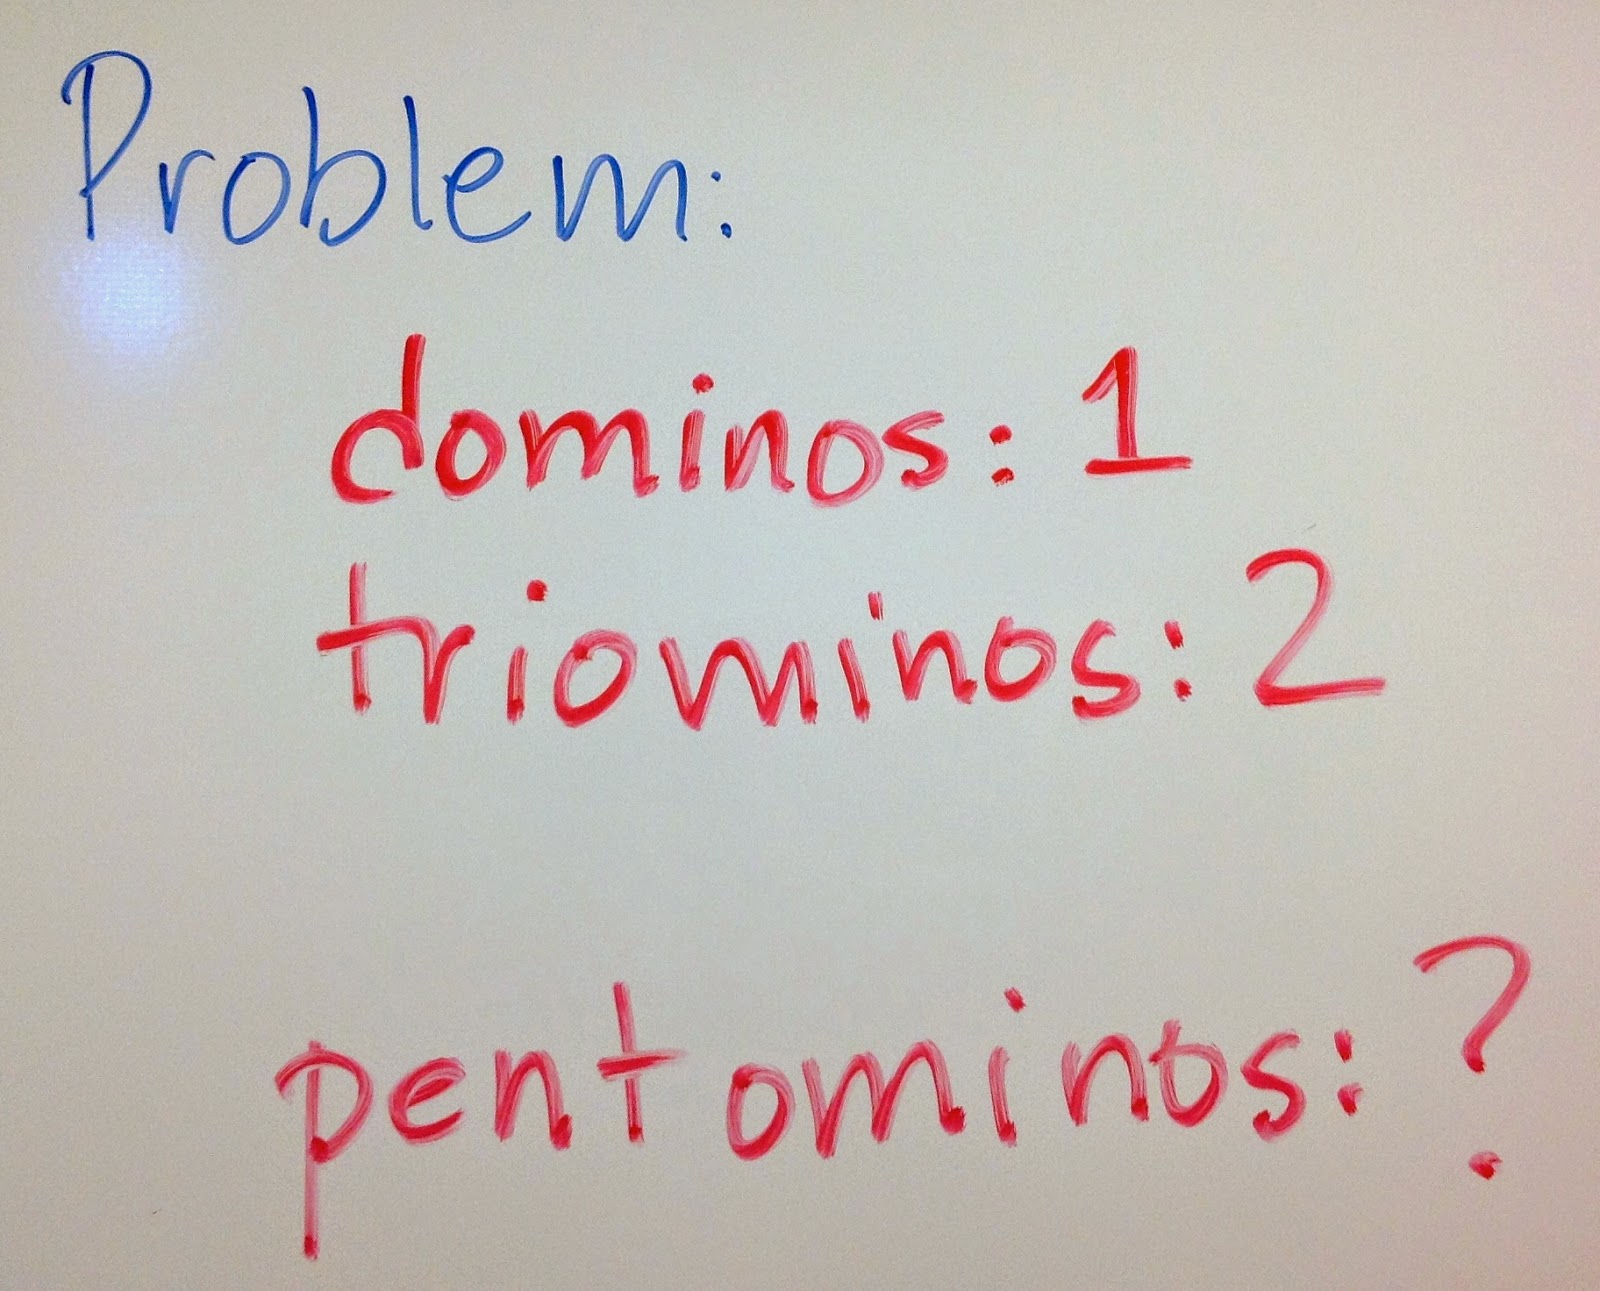 Problem:
dominos: 1
triominos: 2
pentominos: ?